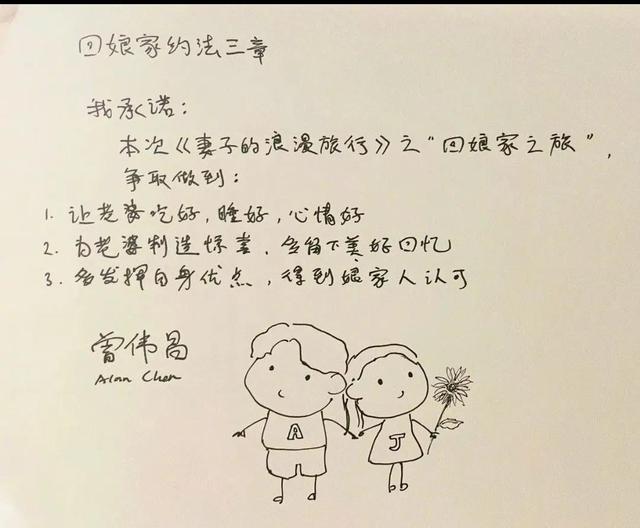 回娘家约法三章
我承诺：
本次《妻子的浪漫旅行》之“回娘家之旅”，
争取做到：
1. 让老婆吃好，睡好，心情好
2. 为老婆制造惊喜，多留下美好回忆
3. 多发挥自身优点，得到娘家人认可
曾伟昌
Alan Chen
A J